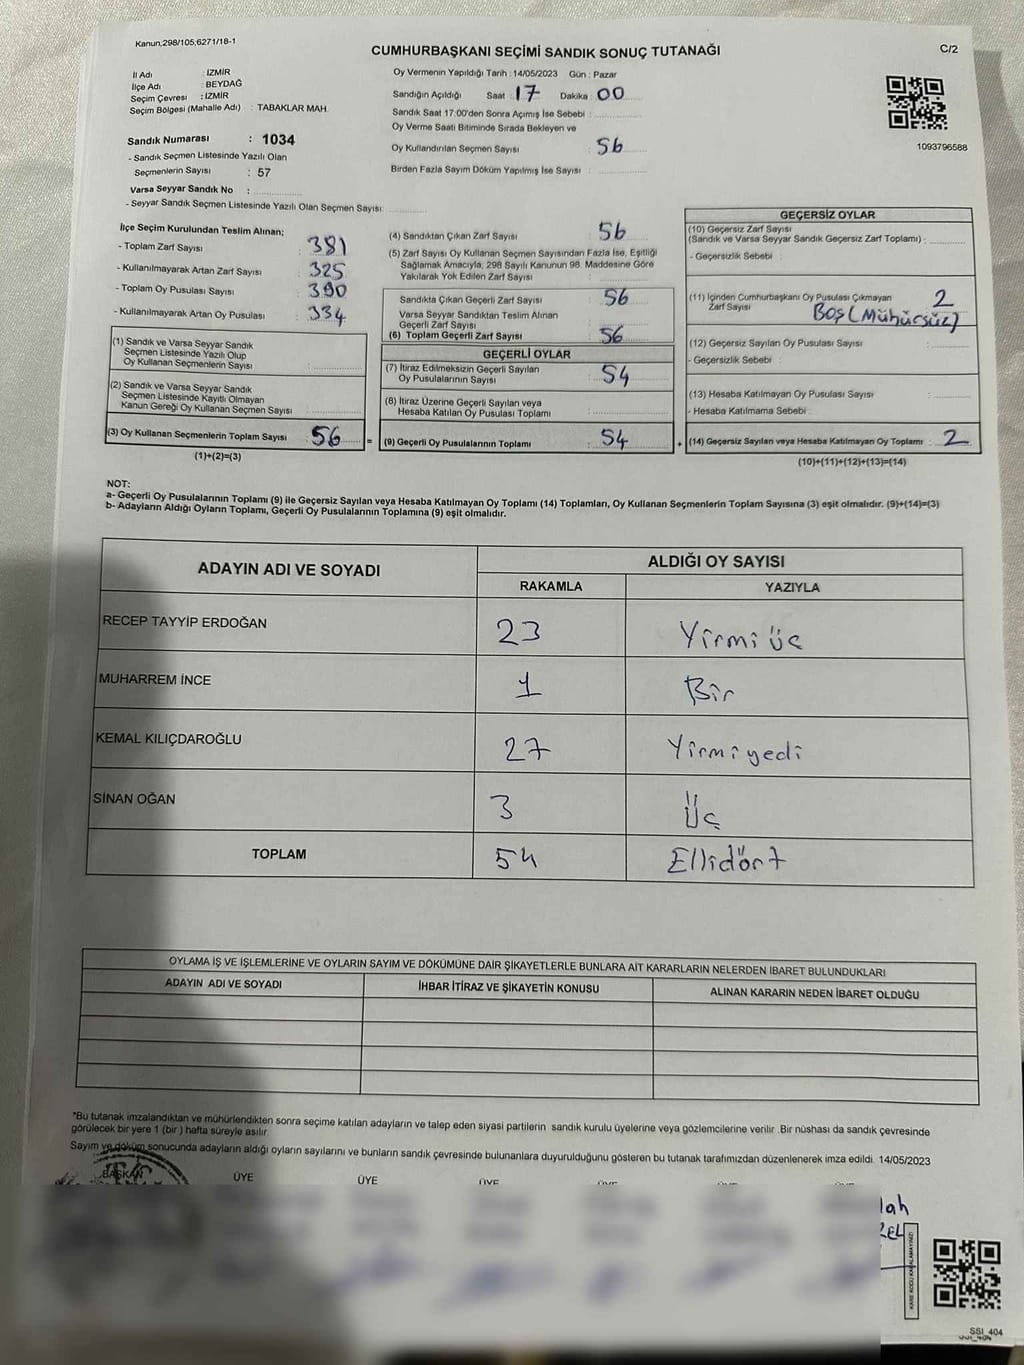 Kanun,298/105,6271/18-1
CUMHURBAŞKANI SEÇİMİ SANDIK SONUÇ TUTANAĞI
C/2
İl Adı : İZMİR
İlçe Adı : BEYDAĞ
Seçim Çevresi : İZMİR
Seçim Bölgesi (Mahalle Adı) : TABAKLAR MAH.
Sandık Numarası : 1034
- Sandık Seçmen Listesinde Yazılı Olan
Seçmenlerin Sayısı : 57
Varsa Seyyar Sandık No :
- Seyyar Sandık Seçmen Listesinde Yazılı Olan Seçmen Sayısı:
Oy Vermenin Yapıldığı Tarih : 14/05/2023 Gün : Pazar
Sandığın Açıldığı Saat : 17 Dakika : 00
Sandık Saat 17:00'den Sonra Açımış İse Sebebi :
Oy Verme Saati Bitiminde Sırada Bekleyen ve
Oy Kullandırılan Seçmen Sayısı : 56
Birden Fazla Sayım Döküm Yapılmış İse Sayısı :
1093796588
İlçe Seçim Kurulundan Teslim Alınan;
- Toplam Zarf Sayısı : 381
- Kullanılmayarak Artan Zarf Sayısı : 325
- Toplam Oy Pusulası Sayısı : 390
- Kullanılmayarak Artan Oy Pusulası : 334
(1) Sandık ve Varsa Seyyar Sandık
Seçmen Listesinde Yazılı Olup
Oy Kullanan Seçmenlerin Sayısı :
(2) Sandık ve Varsa Seyyar Sandık
Seçmen Listesinde Kayıtlı Olmayan
Kanun Gereği Oy Kullanan Seçmen Sayısı :
(3) Oy Kullanan Seçmenlerin Toplam Sayısı : 56 =
(1)+(2)=(3)
(4) Sandıktan Çıkan Zarf Sayısı : 56
(5) Zarf Sayısı Oy Kullanan Seçmen Sayısından Fazla İse, Eşitliği
Sağlamak Amacıyla, 298 Sayılı Kanunun 98. Maddesine Göre
Yakılarak Yok Edilen Zarf Sayısı :
Sandıkta Çıkan Geçerli Zarf Sayısı : 56
Varsa Seyyar Sandıktan Teslim Alınan
Geçerli Zarf Sayısı :
(6) Toplam Geçerli Zarf Sayısı : 56
GEÇERLİ OYLAR
(7) İtiraz Edilmeksizin Geçerli Sayılan
Oy Pusulalarının Sayısı : 54
(8) İtiraz Üzerine Geçerli Sayılan veya
Hesaba Katılan Oy Pusulası Toplamı :
(9) Geçerli Oy Pusulalarının Toplamı : 54 +
GEÇERSİZ OYLAR
(10) Geçersiz Zarf Sayısı
(Sandık ve Varsa Seyyar Sandık Geçersiz Zarf Toplamı) :
- Geçersizlik Sebebi :
(11) İçinden Cumhurbaşkanı Oy Pusulası Çıkmayan
Zarf Sayısı : 2
BOŞ (Mühürsüz)
(12) Geçersiz Sayılan Oy Pusulası Sayısı :
- Geçersizlik Sebebi :
(13) Hesaba Katılmayan Oy Pusulası Sayısı :
- Hesaba Katılmama Sebebi :
(14) Geçersiz Sayılan veya Hesaba Katılmayan Oy Toplamı : 2
(10)+(11)+(12)+(13)=(14)
NOT:
a- Geçerli Oy Pusulalarının Toplamı (9) ile Geçersiz Sayılan veya Hesaba Katılmayan Oy Toplamı (14) Toplamları, Oy Kullanan Seçmenlerin Toplam Sayısına (3) eşit olmalıdır. (9)+(14)=(3)
b- Adayların Aldığı Oyların Toplamı, Geçerli Oy Pusulalarının Toplamına (9) eşit olmalıdır.
ADAYIN ADI VE SOYADI
ALDIĞI OY SAYISI
RAKAMLA YAZIYLA
RECEP TAYYİP ERDOĞAN 23 Yirmi üç
MUHARREM İNCE 1 Bir
KEMAL KILIÇDAROĞLU 27 Yirmi yedi
SİNAN OĞAN 3 Üç
TOPLAM 54 Ellidört
OYLAMA İŞ VE İŞLEMLERİNE VE OYLARIN SAYIM VE DÖKÜMÜNE DAİR ŞİKAYETLERLE BUNLARA AİT KARARLARIN NELERDEN İBARET BULUNDUKLARI
ADAYIN ADI VE SOYADI İHBAR İTİRAZ VE ŞİKAYETİN KONUSU ALINAN KARARIN NEDEN İBARET OLDUĞU
*Bu tutanak imzalandıktan ve mühürlendikten sonra seçime katılan adayların ve talep eden siyasi partilerin sandık kurulu üyelerine veya gözlemcilerine verilir .Bir nüshası da sandık çevresinde
görülecek bir yere 1 (bir ) hafta süreyle asılır.
Sayım ve döküm sonucunda adayların aldığı oyların sayılarını ve bunların sandık çevresinde bulunanlara duyurulduğunu gösteren bu tutanak tarafımızdan düzenlenerek imza edildi. 14/05/2023
BAŞKAN ÜYE ÜYE ÜYE
lah
ZEL
KARE KODU KARALAMAYINIZ!
SSI_404